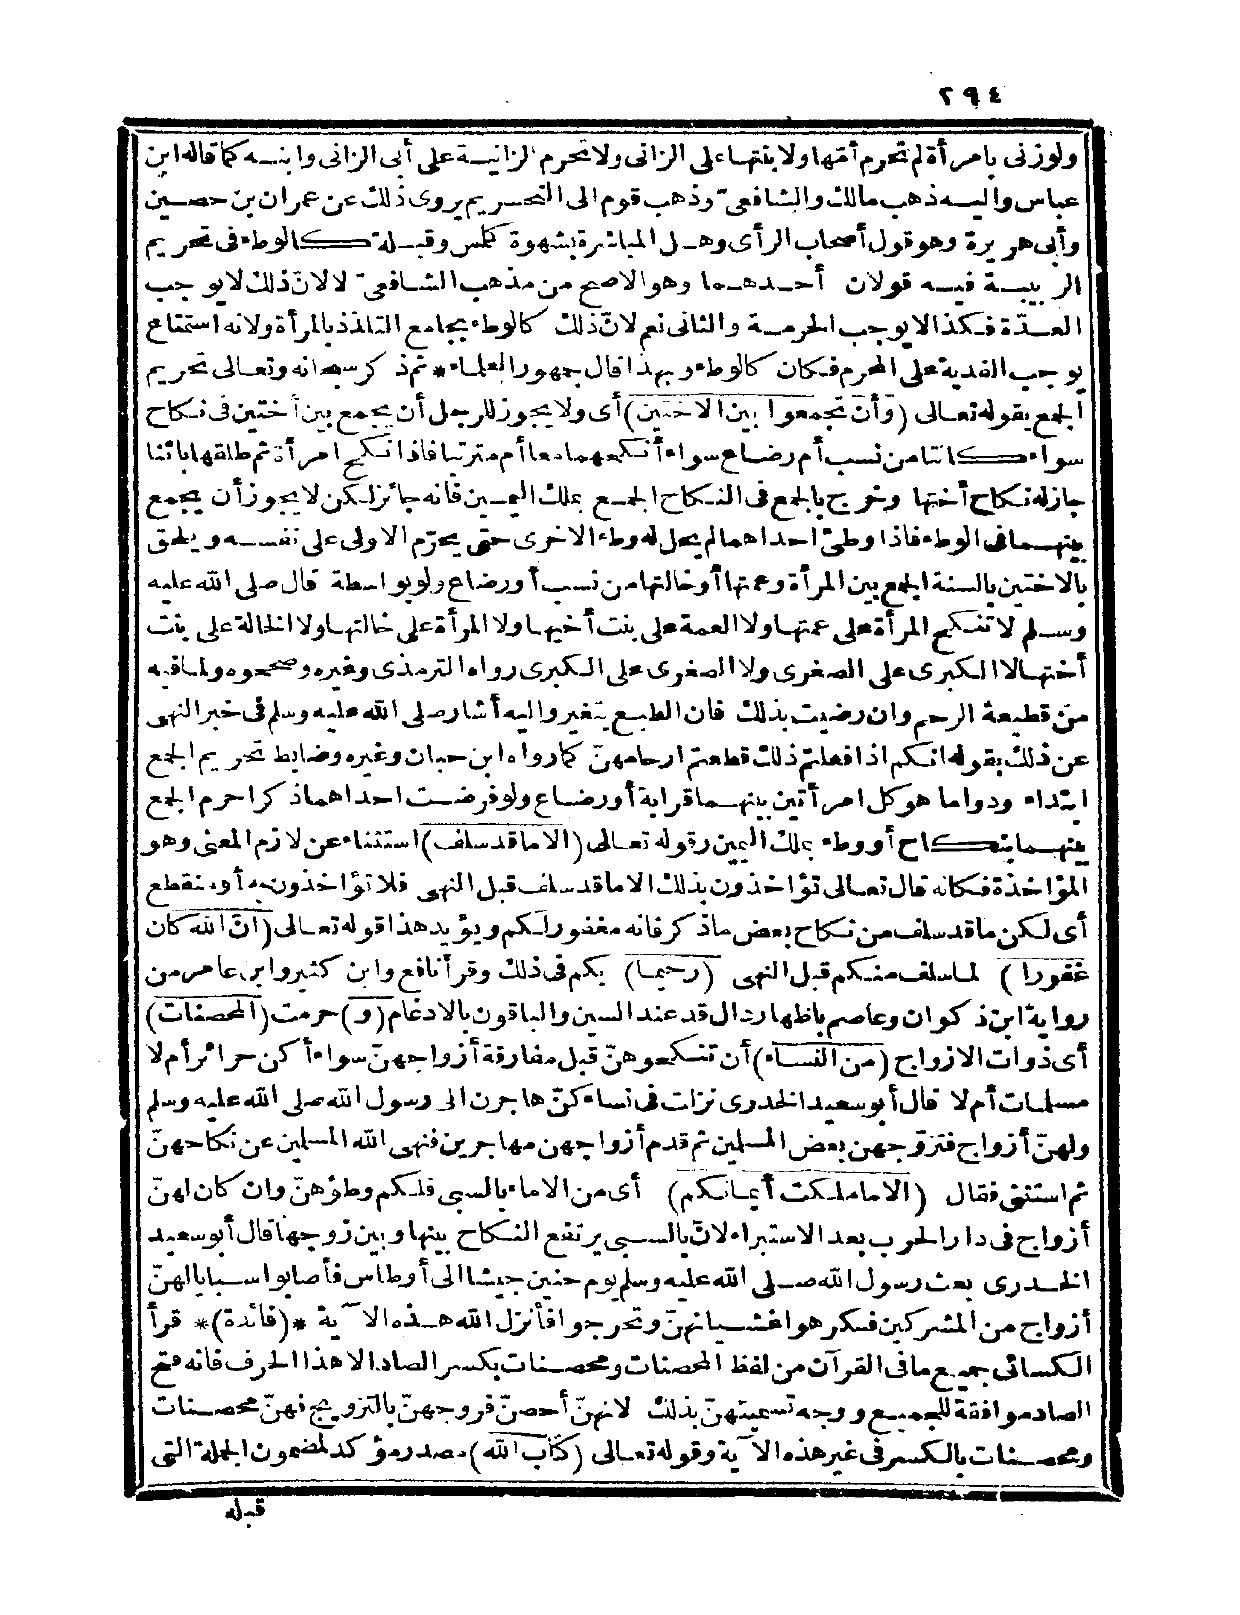 ٢٩٤
ولو زنى بامرأة لم تحرم أمّها ولا بنتها على الزانى ولا تحرم الزانية على أبى الزانى وابنه كما قاله ابن
عباس واليه ذهب مالك والشافعىّ وذهب قوم الى التحريم يروى ذلك عن عمران بن حصين
وأبى هريرة وهو قول أصحاب الرأى وهل المباشرة بشهوة كلمس وقبلة كالوطء فى تحريم
الربيبة فيه قولان أحدهما وهو الاصح من مذهب الشافعىّ لا لانّ ذلك لا يوجب
العدّة فكذا لا يوجب الحرمة والثانى نعم لانّ ذلك كالوطء بجامع التلذذ بالمرأة ولانه استمتاع
يوجب الفدية على المحرم فكان كالوطء وبهذا قال جمهور العلماء * ثم ذكر سبحانه وتعالى تحريم
الجمع بقوله تعالى (وأن تجمعوا بين الاختين) أى ولا يجوز للرجل أن يجمع بين أختين فى نكاح
سواء كانتا من نسب أم رضاع سواء أنكحهما معا أم مترتبا فاذا نكح امرأة ثم طلقها بائنا
جاز له نكاح أختها وخرج بالجمع فى النكاح الجمع بملك اليمين فانه جائز لكن لا يجوز أن يجمع
بينهما فى الوطء فاذا وطئ احداهما لم يحل له وطء الاخرى حتى يحرّم الاولى على نفسه ويلحق
بالاختين بالسنة الجمع بين المرأة وعمتها أو خالتها من نسب أو رضاع ولو بواسطة قال صلى الله عليه
وسلم لا تنكح المرأة على عمتها ولا العمة على بنت أخيها ولا المرأة على خالتها ولا الخالة على بنت
أختها لا الكبرى على الصغرى ولا الصغرى على الكبرى رواه الترمذى وغيره وصححوه ولما فيه
من قطيعة الرحم وان رضيت بذلك فان الطبع يتغير واليه أشار صلى الله عليه وسلم فى خبر النهى
عن ذلك بقوله انكم اذا فعلتم ذلك قطعتم ارحامهنّ كما رواه ابن حبان وغيره وضابط تحريم الجمع
ابتداء ودواما هو كل امرأتين بينهما قرابة أو رضاع ولو فرضت احداهما ذكرا حرم الجمع
بينهما بنكاح أو وطء بملك اليمين وقوله تعالى (الا ما قد سلف) استثناء عن لازم المعنى وهو
المؤاخذة فكانه قال تعالى تؤاخذون بذلك الا ما قد سلف قبل النهى فلا تؤاخذون به أو منقطع
أى لكن ما قد سلف من نكاح بعض ما ذكر فانه مغفور لكم ويؤيد هذا قوله تعالى (انّ الله كان
غفورا) لما سلف منكم قبل النهى (رحيما) بكم فى ذلك وقرأ نافع وابن كثير وابن عامر من
رواية ابن ذكوان وعاصم باظهار دال قد عند السين والباقون بالادغام (و) حرمت (المحصنات)
أى ذوات الازواج (من النساء) أن تنكحوهنّ قبل مفارقة أزواجهنّ سواء أكن حرائر أم لا
مسلمات أم لا قال أبو سعيد الخدرى نزلت فى نساء كنّ هاجرن الى رسول الله صلى الله عليه وسلم
ولهنّ أزواج فتزوّجهن بعض المسلمين ثم قدم أزواجهن مهاجرين فنهى الله المسلمين عن نكاحهنّ
ثم استثنى فقال (الا ما ملكت أيمانكم) أى من الاماء بالسبى فلكم وطؤهنّ وان كان لهنّ
أزواج فى دار الحرب بعد الاستبراء لانّ بالسبى يرتفع النكاح بينها وبين زوجها قال أبو سعيد
الخدرى بعث رسول الله صلى الله عليه وسلم يوم حنين جيشا الى أوطاس فأصابوا سبايا لهنّ
أزواج من المشركين فكرهوا غشيانهنّ وتحرجوا فأنزل الله هذه الآية *(فائدة)* قرأ
الكسائى جميع ما فى القرآن من لفظ المحصنات ومحصنات بكسر الصاد الا هذا الحرف فانه فتح
الصاد موافقة للجميع ووجه تسميتهنّ بذلك لانهنّ أحصنّ فروجهنّ بالتزويج فهنّ محصنات
ومحصنات بالكسر فى غير هذه الآية وقوله تعالى (كتاب الله) مصدر مؤكد لمضمون الجملة التى
قبله